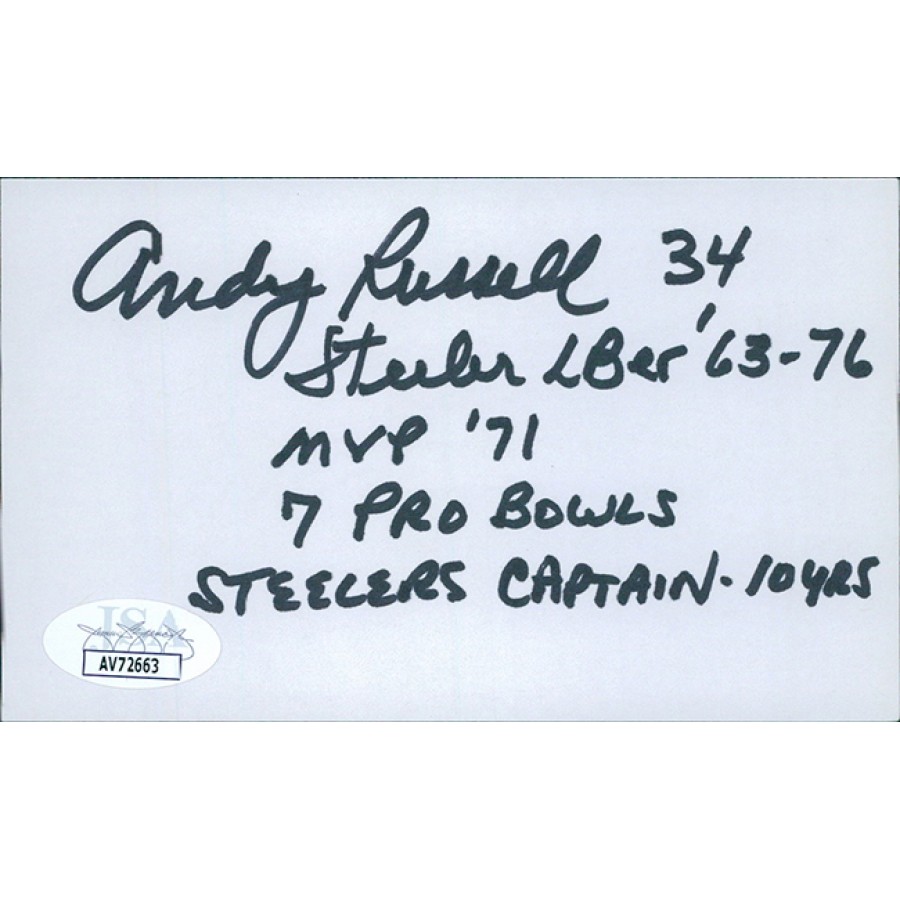 Andy Russell 34
Steeler LBer '63-76
MVP '71
7 PRO BOWLS
STEELERS CAPTAIN - 10 YRS
JSA
AV72663